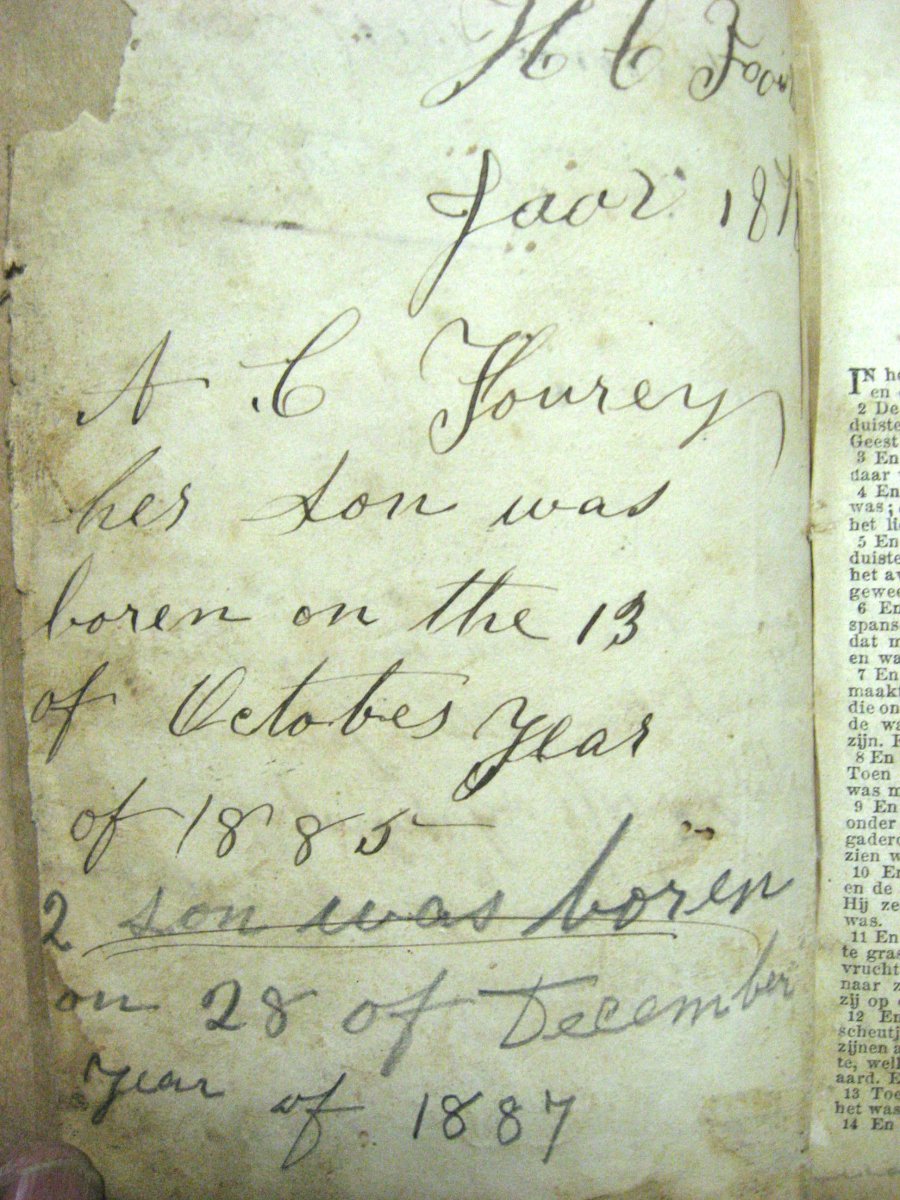 H C
Jaar 187
A C Fourey
her son was
boren on the 13
of October Year
of 1885
2 son was boren
on 28 of December
year of 1887
IN he
en
2 De
duiste
Geest
3 En
daar
4 En
was;
het li
5 En
duiste
het av
gewee
6 En
spans
dat m
en wa
7 En
maakt
die on
de wa
zijn. E
8 En
Toen
was m
9 En
onder
gadero
zien w
10 En
en de
Hij ze
was.
11 En
te gras
vrucht
naar z
zij op
12 En
scheutj
zijnen a
te, welk
aard. E
13 Toe
het was
14 En